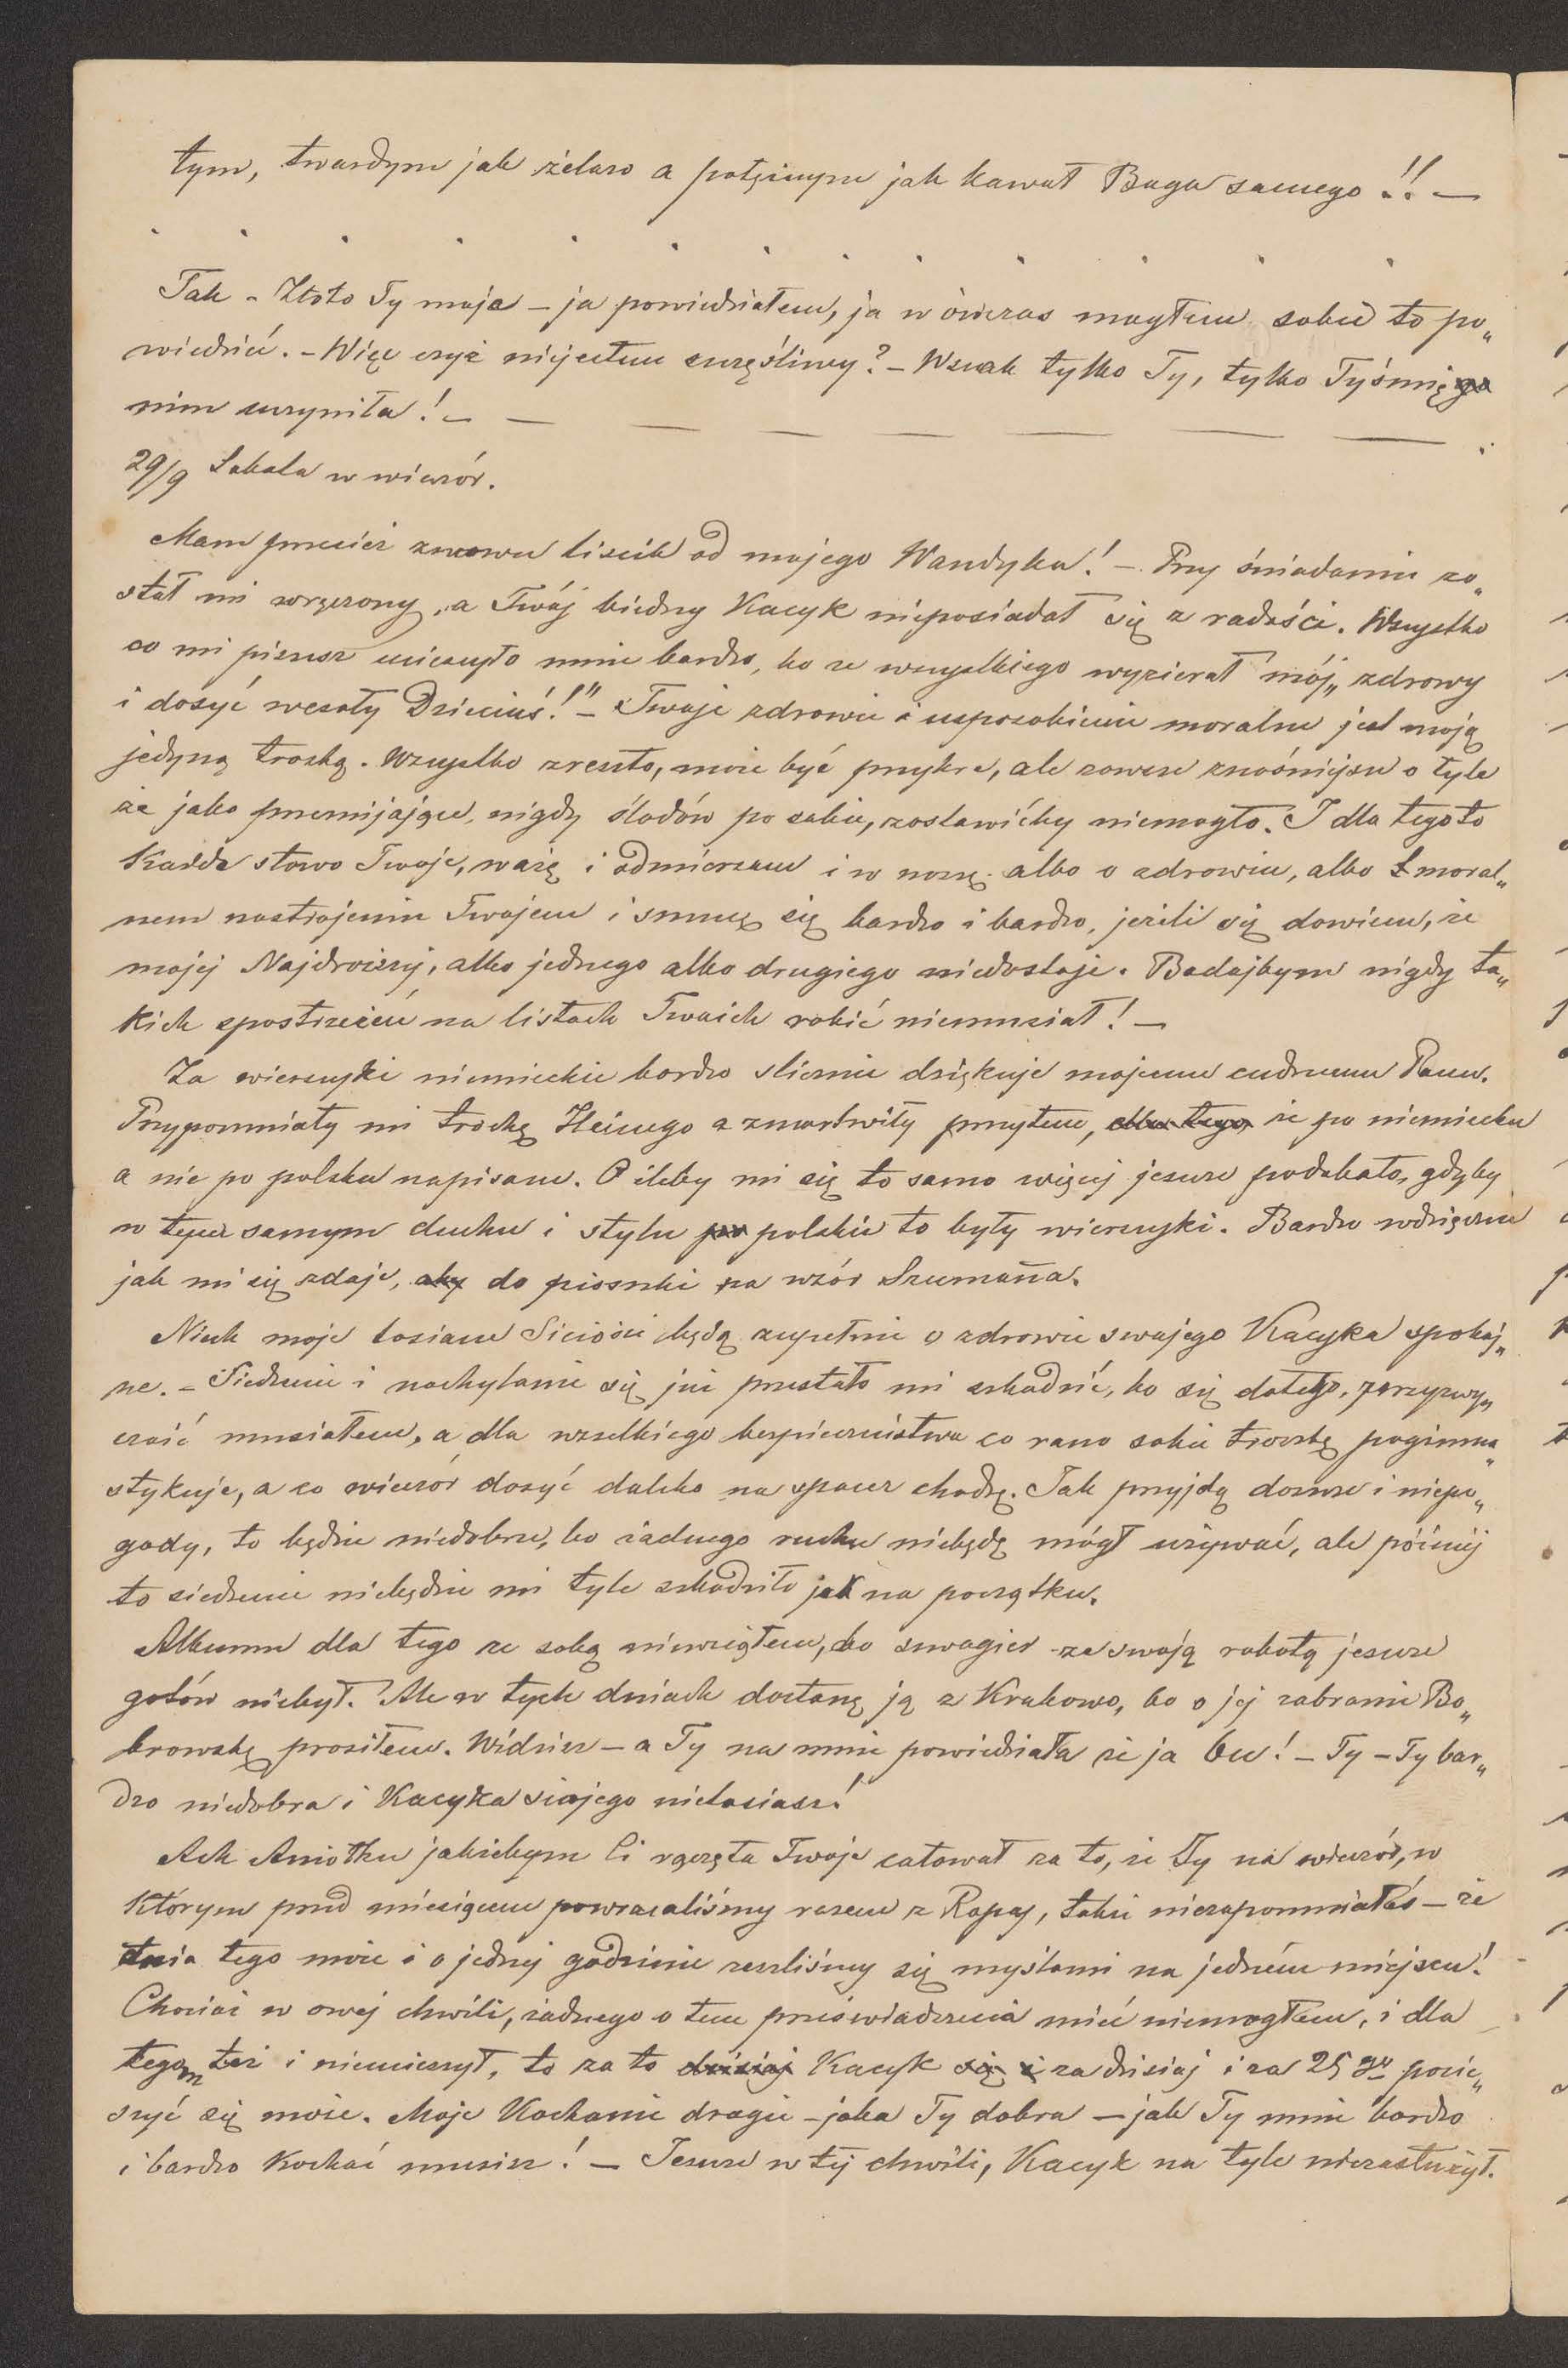 tym, twardym jak żelazo a potężnym jak kawał Boga samego!! —
. . . . . . . . . . . .
Tak – Złoto Ty moje – ja powiedziałem, ja w ówczas mogłem sobie to po„
wiedzieć. – Więc czyż niejestem szczęśliwy? – Wszak tylko Ty, tylko Tyś mię
nim uczyniła! – — — — — — — — .
29/9 Sobota w wieczór.
Mam przecież znowu liścik od mojego Wandyka! – Przy śniadaniu zo„
stał mi wręczony, a Twój biedny Kacyk nieposiadał się z radości. Wszystko
co mi piszesz ucieszyło mnie bardzo, bo ze wszystkiego wyzierał mój „zdrowy
i dosyć wesoły Dzieciuś!" – Twoje zdrowie i usposobienie moralne jest moją
jedyną troską. Wszystko zresztą, może być przykre, ale zawsze znośniejsze o tyle
że jako przemijające, nigdy śladów po sobie, zostawićby niemogło. I dla tego to
Każde słowo Twoje, ważę i odmierzam i w noszę albo o zdrowiu, albo o moral„
nem nastrojeniu Twojem i smucę się bardzo i bardzo, jeżeli się dowiem, że
mojej Najdroższej, albo jednego albo drugiego niedostaje. Bodajbym nigdy ta„
kich spostrzeżeń na listach Twoich robić niemusiał! —
Za wierszyki niemieckie bardzo ślicznie dziękuję mojemu cudnemu Panu.
Przypomniały mi trochę Heinego a zmartwiły przytem, dla tego, że po niemiecku
a nie po polsku napisane. O ileby mi się to samo więcej jeszcze podobało, gdyby
w tym samym duchu i stylu po polskie to były wierszyki. Bardzo wdzięczne
jak mi się zdaje, aby do piosnki na wzór Szumanna.
Niech moje łosiane Siciosie będą zupełnie o zdrowie swojego Kacyka spokoj„
ne. – Siedzenie i nachylanie się już przestało mi szkodzić, bo się do tego, przyzwy„
czaić musiałem, a dla wszelkiego bezpieczeństwa co rano sobie troszkę pogimna„
stykuję, a co wieczór dosyć daleko na spacer chodzę. Jak przyjdą deszcze i niepo„
gody, to będzie niedobrze, bo żadnego ruchu niebędę mógł używać, ale później
to siedzenie niebędzie mi tyle szkodziło jak na początku.
Albumu dla tego ze sobą niewziąłem, bo szwagier ze swoją robotą jeszcze
gotów niebył. Ale w tych dniach dostanę ją z Krakowa, bo o jej zabranie Bo„
browską prosiłem. Widzisz – a Ty na mnie powiedziała że ja be! – Ty – Ty bar„
dzo niedobra i Kacyka siojego nielosiasz!
Ach Aniołku jakżebym Ci rączęta Twoje całował za to, że Ty na wieczór, w
którym przed miesiącem powracaliśmy razem z Ropy, także niezapomniałaś – że
dnia tego może i o jednej godzinie zeszliśmy się myślami na jedném miejscu!
Chociaż w owej chwili, żadnego o tem przeświadczenia mieć niemogłem, i dla
tegom też i niewierzył, to za to dzisiaj Kacyk się i za dzisiaj i za 25go pocie„
szyć się może. Moje Kochanie drogie – jaka Ty dobra – jak Ty mnie bardzo
i bardzo kochać musisz! – Jeszcze w tej chwili, Kacyk na tyle niezasłużył.